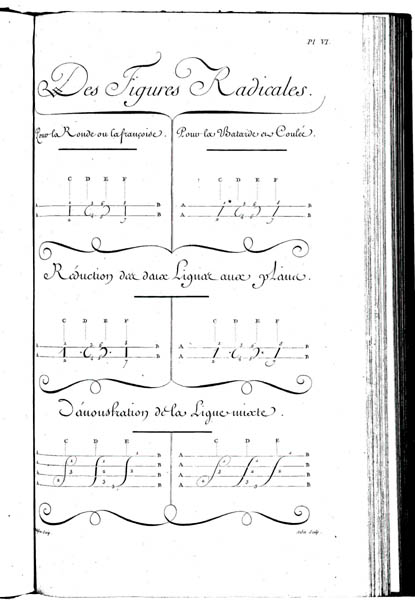 Pl VI.
Des Figures Radicales.
Pour la Ronde ou la françoise. Pour la Batarde et Coulée.
C D E F C D E F
A B A B
A B A B
Réduction des deux Lignes aux pleins.
C D E F C D E F
A B A B
A B A B
Démonstration de la Ligne mixte.
C D E C D E
A B A B
A B A B
A B A B
A B A B
Aubin Sculp.